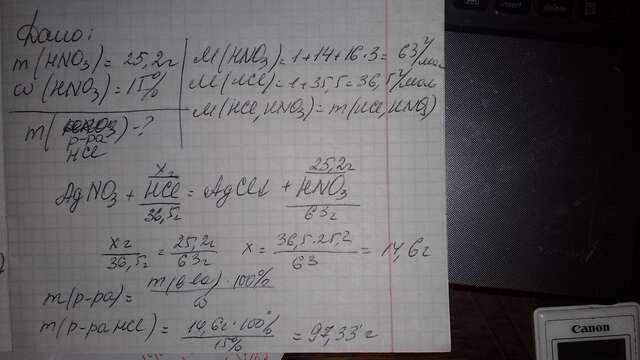 Дано:
m(HNO3)=25,2г
ω(HNO3)=15%
m(
р-ра
HCl
)-?
M(HNO3)=1+14+16·3=63г/моль
M(HCl)=1+35,5=36,5г/моль
M(HCl,HNO3)=m(HCl,HNO3)
xг 25,2г
AgNO3+HCl=AgCl↓+HNO3
36,5г 63г
xг/36,5г=25,2г/63г x=36,5·25,2/63=14,6г
m(р-ра)=m(в-ва)·100%/ω
m(р-ра HCl)=14,6г·100%/15%=97,33г
Canon